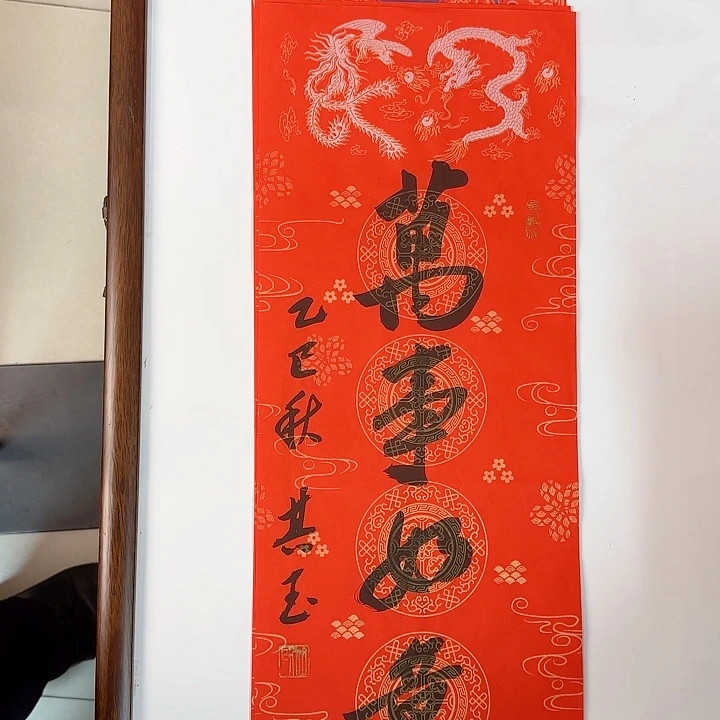 萬事如
乙巳秋 其玉